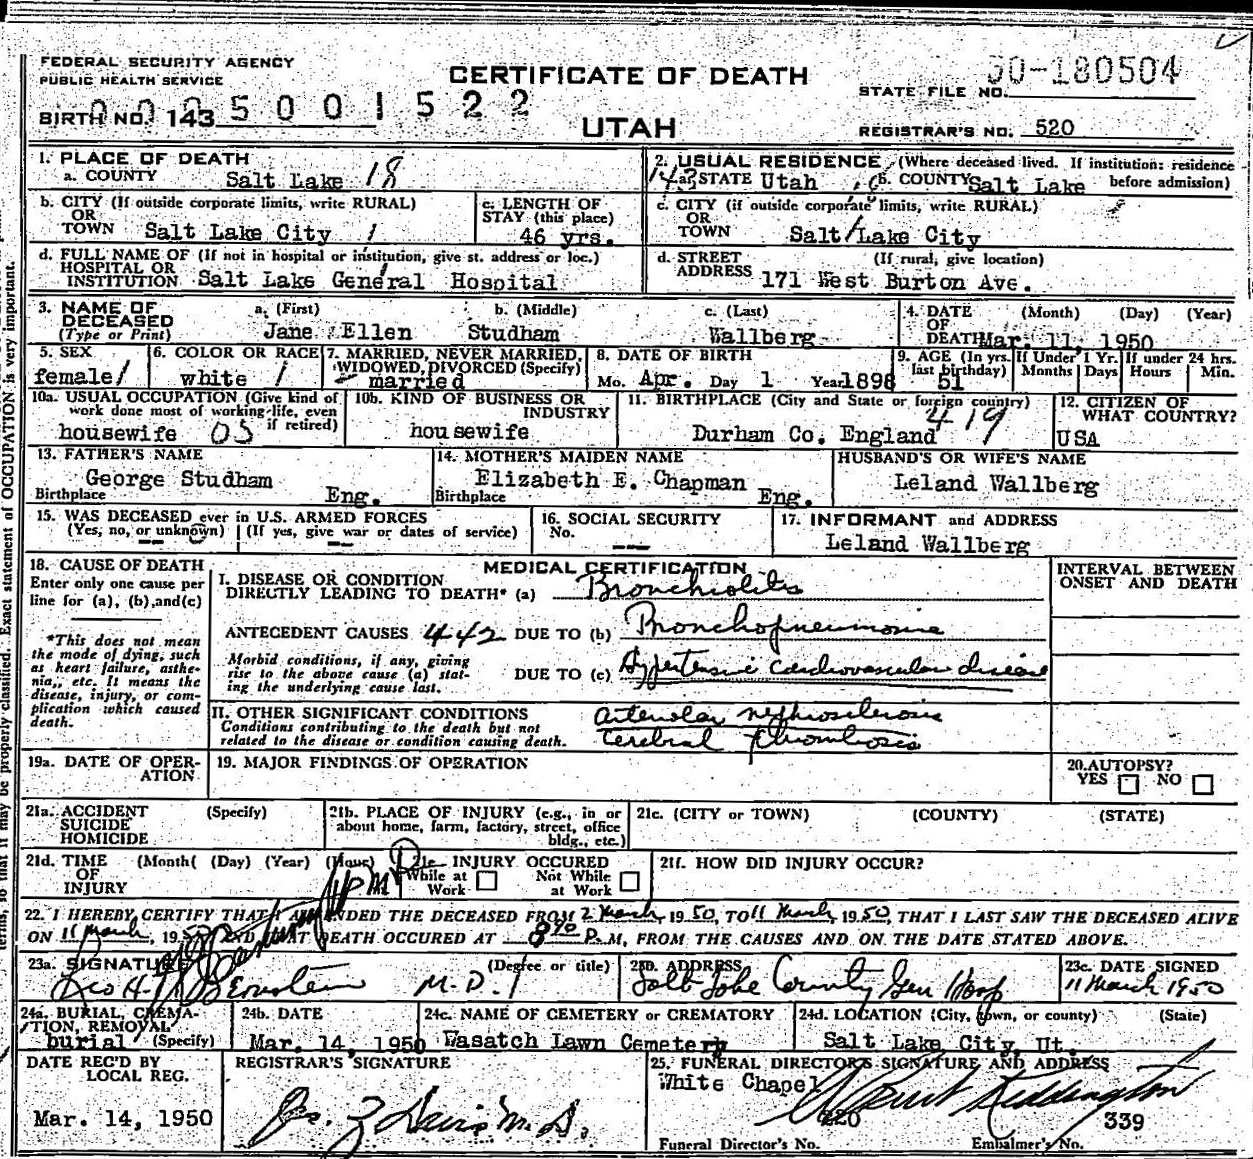 FEDERAL SECURITY AGENCY
PUBLIC HEALTH SERVICE
CERTIFICATE OF DEATH
UTAH
BIRTH NO. 143
5 0 0 1 5 2 2
STATE FILE NO. 50-180504
REGISTRAR'S NO. 520
1. PLACE OF DEATH
a. COUNTY Salt Lake 18
2. USUAL RESIDENCE (Where deceased lived. If institution: residence before admission)
143 a. STATE Utah b. COUNTY Salt Lake
b. CITY (If outside corporate limits, write RURAL)
OR TOWN Salt Lake City 1
c. LENGTH OF STAY (this place)
46 yrs.
c. CITY (if outside corporate limits, write RURAL)
OR TOWN Salt Lake City
d. FULL NAME OF (If not in hospital or institution, give st. address or loc.)
HOSPITAL OR INSTITUTION Salt Lake General Hospital
d. STREET ADDRESS (If rural, give location)
171 West Burton Ave.
3. NAME OF DECEASED (Type or Print)
a. (First) b. (Middle) c. (Last)
Jane Ellen Studham Wallberg
4. DATE OF DEATH (Month) (Day) (Year)
Mar. 11, 1950
5. SEX
female 1
6. COLOR OR RACE
white 1
7. MARRIED, NEVER MARRIED, WIDOWED, DIVORCED (Specify)
married
8. DATE OF BIRTH
Mo. Apr. Day 1 Year 1898
9. AGE (In yrs. last birthday)
51
If Under 1 Yr. Months Days
If under 24 hrs. Hours Min.
10a. USUAL OCCUPATION (Give kind of work done most of working life, even if retired)
housewife 05
10b. KIND OF BUSINESS OR INDUSTRY
housewife
11. BIRTHPLACE (City and State or foreign country)
Durham Co. England 419
12. CITIZEN OF WHAT COUNTRY?
USA
13. FATHER'S NAME
George Studham
Birthplace Eng.
14. MOTHER'S MAIDEN NAME
Elizabeth E. Chapman
Birthplace Eng.
HUSBAND'S OR WIFE'S NAME
Leland Wallberg
15. WAS DECEASED ever in U.S. ARMED FORCES
(Yes, no, or unknown) (If yes, give war or dates of service)
-- --
16. SOCIAL SECURITY
No. ---
17. INFORMANT and ADDRESS
Leland Wallberg
18. CAUSE OF DEATH
Enter only one cause per line for (a), (b), and (c)
*This does not mean the mode of dying, such as heart failure, asthenia, etc. It means the disease, injury, or complication which caused death.
MEDICAL CERTIFICATION
I. DISEASE OR CONDITION DIRECTLY LEADING TO DEATH* (a) Bronchiolitis
ANTECEDENT CAUSES 442 DUE TO (b) Bronchopneumonia
Morbid conditions, if any, giving rise to the above cause (a) stating the underlying cause last.
DUE TO (c) Hypertensive cardiovascular disease
II. OTHER SIGNIFICANT CONDITIONS
Conditions contributing to the death but not related to the disease or condition causing death.
arteriolar nephrosclerosis
cerebral thrombosis
INTERVAL BETWEEN ONSET AND DEATH
19a. DATE OF OPERATION
19. MAJOR FINDINGS OF OPERATION
20. AUTOPSY?
YES NO
21a. ACCIDENT SUICIDE HOMICIDE (Specify)
21b. PLACE OF INJURY (e.g., in or about home, farm, factory, street, office bldg., etc.)
21c. (CITY or TOWN) (COUNTY) (STATE)
21d. TIME OF INJURY (Month( (Day) (Year) (Hour)
21e. INJURY OCCURED
While at Work Not While at Work
21f. HOW DID INJURY OCCUR?
22. I HEREBY CERTIFY THAT I ATTENDED THE DECEASED FROM 2 March, 1950, TO 11 March, 1950, THAT I LAST SAW THE DECEASED ALIVE
ON 11 March, 1950 AND THAT DEATH OCCURED AT P.M, FROM THE CAUSES AND ON THE DATE STATED ABOVE.
23a. SIGNATURE (Degree or title)
Leo H. Bernstein M.D.
23b. ADDRESS
Salt Lake County Gen Hosp
23c. DATE SIGNED
11 March 1950
24a. BURIAL, CREMATION, REMOVAL (Specify)
burial
24b. DATE
Mar. 14, 1950
24c. NAME OF CEMETERY or CREMATORY
Wasatch Lawn Cemetery
24d. LOCATION (City, town, or county) (State)
Salt Lake City, Ut.
DATE REC'D BY LOCAL REG.
Mar. 14, 1950
REGISTRAR'S SIGNATURE
Davis M.D.
25. FUNERAL DIRECTOR'S SIGNATURE AND ADDRESS
White Chapel
Funeral Director's No.
Embalmer's No. 339